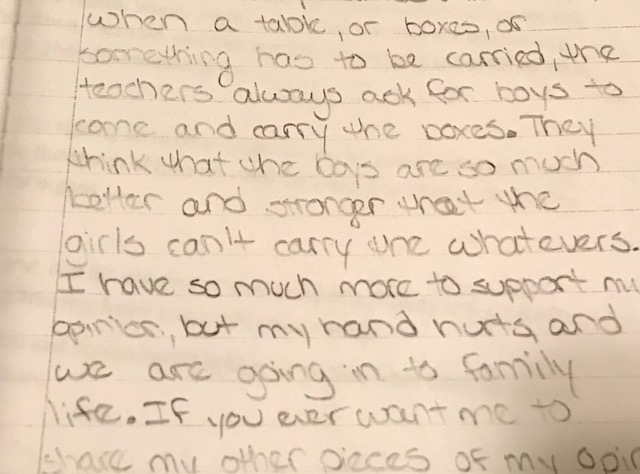 when a table, or boxes, or
something has to be carried, the
teachers always ask for boys to
come and carry the boxes. They
think that the boys are so much
better and stronger that the
girls can't carry the whatevers.
I have so much more to support my
opinion, but my hand hurts, and
we are going in to family
life. If you ever want me to
share my other pieces of my